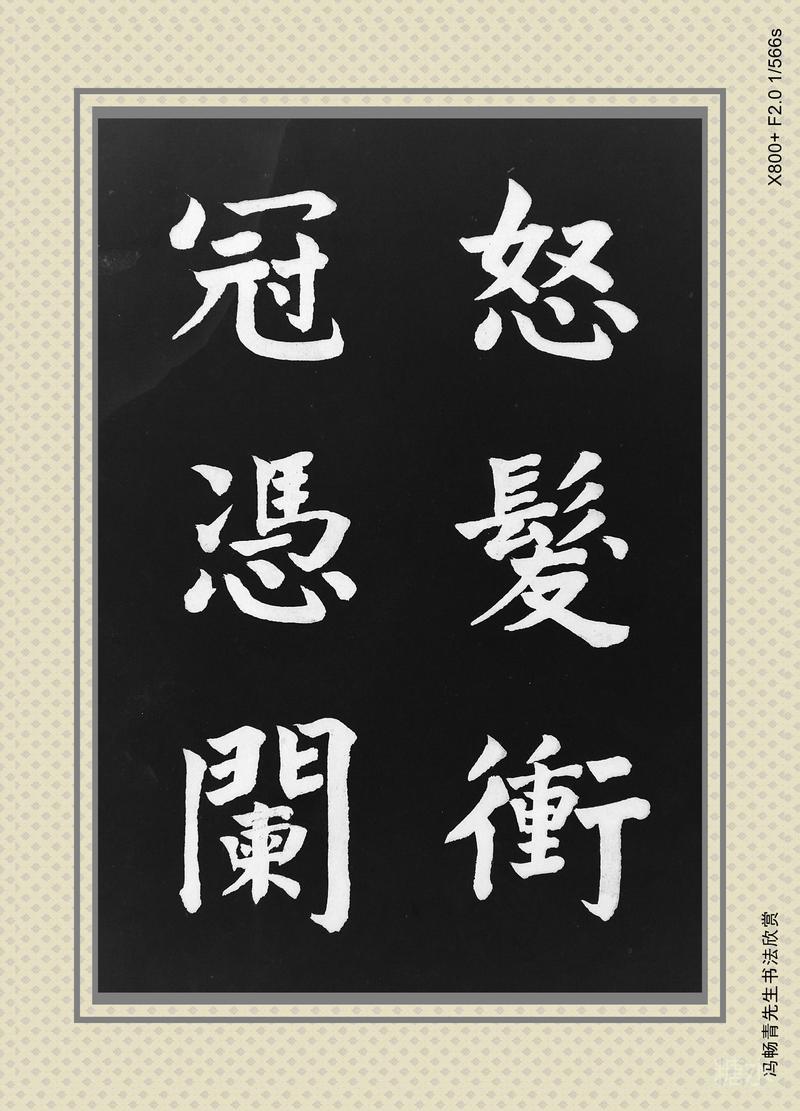 怒髮衝
冠憑闌
X800+ F2.0 1/566s
冯畅青先生书法欣赏